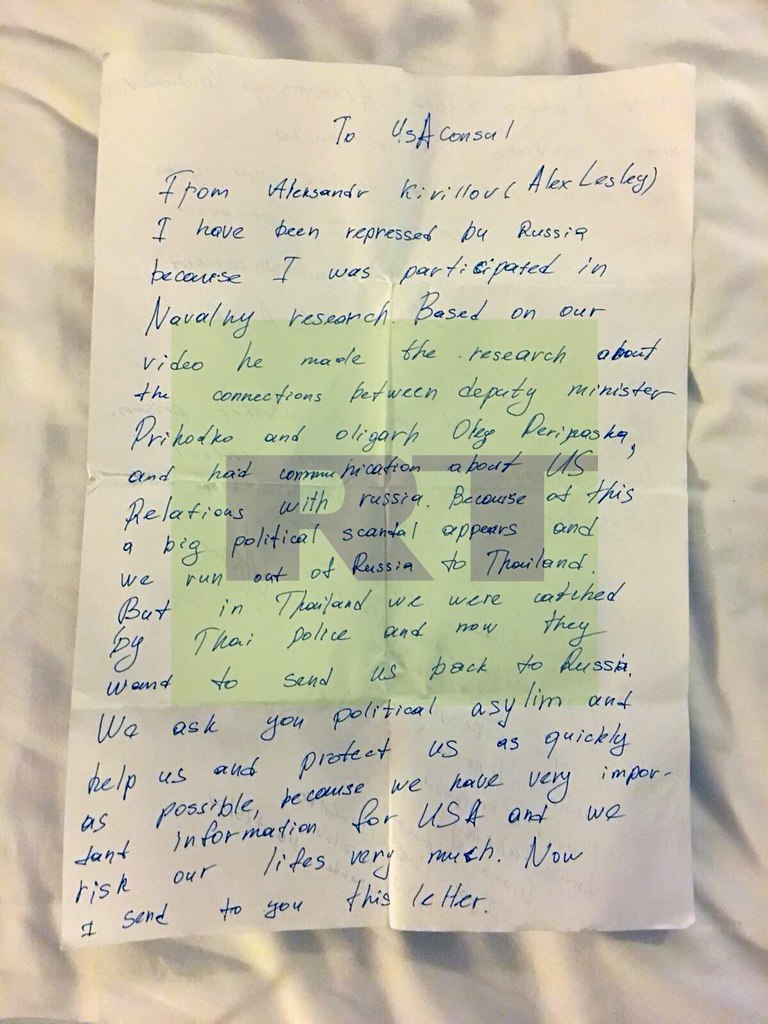 To USA consul
From Aleksandr Kirillov (Alex Lesley)
I have been repressed by Russia
because I was participated in
Navalny research. Based on our
video he made the research about
the connections between deputy minister
Prihodko and oligarh Oleg Deripaska,
and had communication about US
Relations with russia. Because of this
a big political scantal appears and
we run out of Russia to Thailand.
But in Thailand we were catched
by Thai police and now they
want to send us back to Russia.
We ask you political asylim and
help us and protect us as quickly
as possible, because we have very impor-
tant information for USA and we
risk our lifes very much. Now
I send to you this letter.
RT